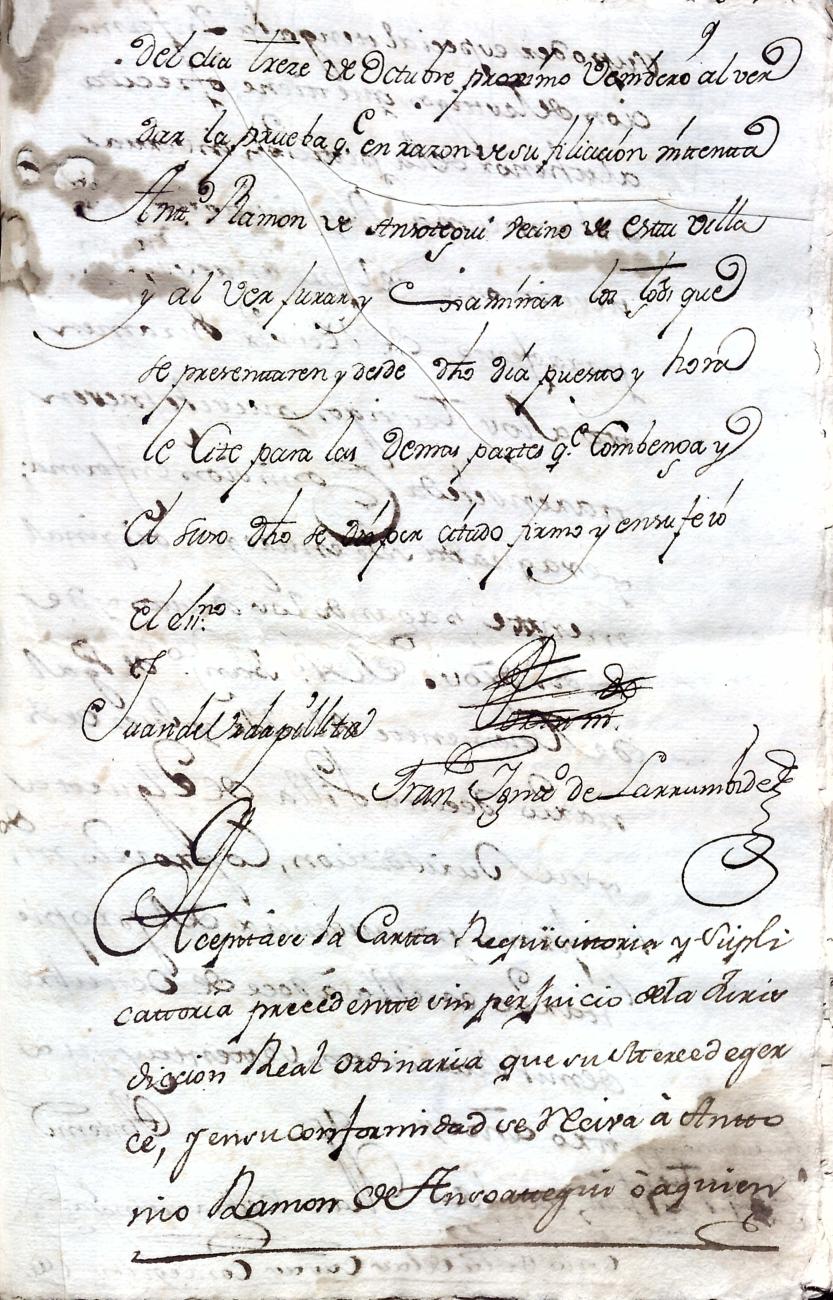 9
del dia treze de Octubre proximo venidero al ver
dar la prueba q.e en razon de su filiación intenta
Antt.o Ramon de Ansotegui vecino de esta villa
y al ver jurar y Examinar los tgōs que
se presentaren y desde dho dia puesto y hora
le Cite para las demas partes q.e Combenga y
El suso dho se dio por citado firmo y en su fe io
El essno
Juan de Urdapilleta
Fran.co Ign.o de Larrumbide
Aceptáse la Cartta Requisittoria y Supli
cattoria precedentte sin perjuicio dela Juris
diccion Real ordinaria que su Merced eger
ce, y en su conformidad se Reciva à Antto
nio Ramon de Ansoattegui ò aquien